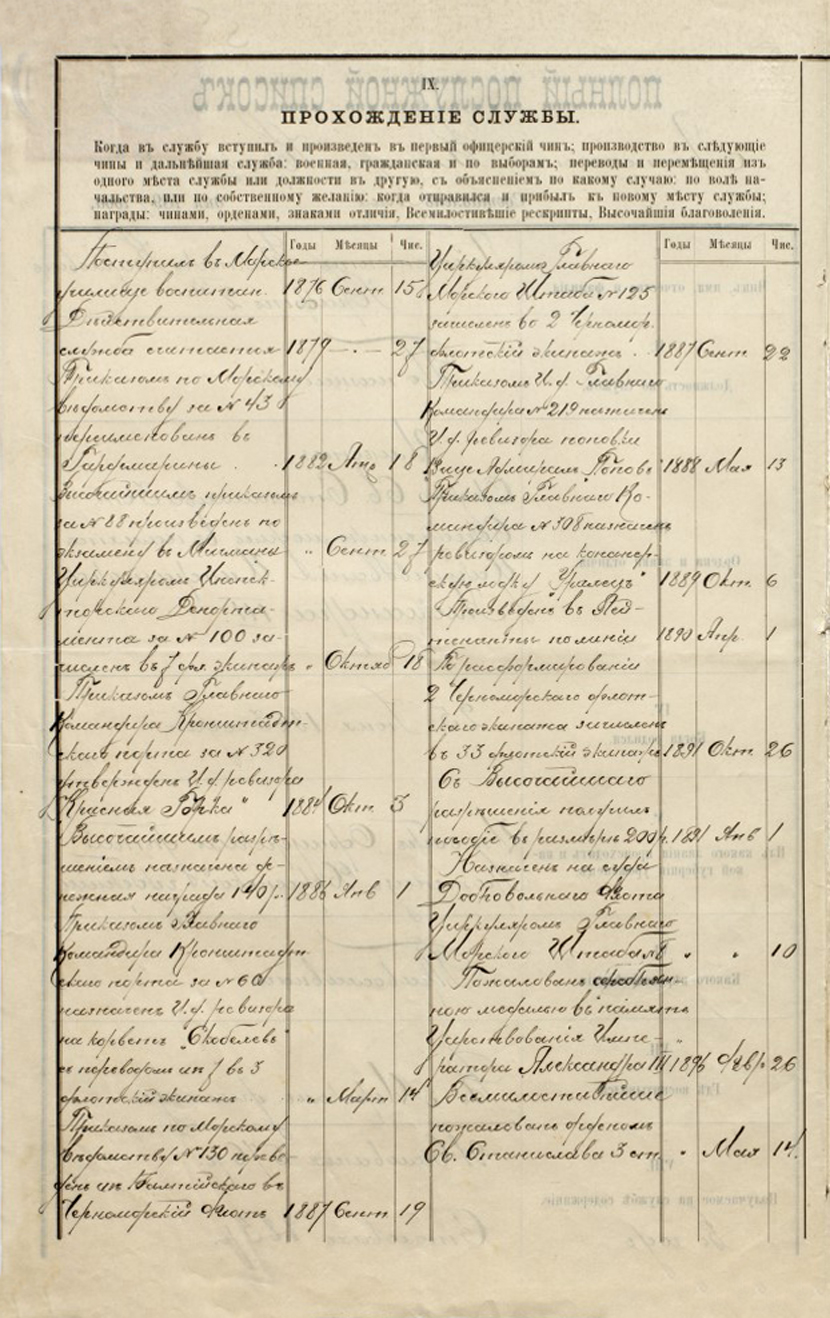 IX.
ПРОХОЖДЕНІЕ СЛУЖБЫ.
Когда въ службу вступилъ и произведенъ въ первый офицерскій чинъ; производство въ слѣдующіе
чины и дальнѣйшая служба: военная, гражданская и по выборамъ; переводы и перемѣщенія изъ
одного мѣста службы или должности въ другую, съ объясненіемъ по какому случаю: по волѣ на-
чальства, или по собственному желанію: когда отправился и прибылъ къ новому мѣсту службы;
награды: чинами, орденами, знаками отличія, Всемилостивѣйшіе рескрипты, Высочайшія благоволенія.
Годы Мѣсяцы Чис.
Поступилъ въ Морское
училище воспитан. 1876 Сент 15
Дѣйствительная
служба считается 1879 — . — 27
Приказомъ по Морскому
вѣдомству за № 43
переименованъ въ
Гардемарины . . 1882 Апр 18
Высочайшимъ приказомъ
за № 88 произведенъ по
экзамену въ Мичманы „ Сент 27
Циркуляромъ Инспек-
торскаго Департа-
мента за № 100 за-
численъ въ 7 фл. экипажъ „ Октяб 18
Приказомъ Главнаго
Командира Кронштадт-
скаго порта за № 320
утвержденъ И.д. ревизора
„Красная Горка" 1884 Окт 3
Высочайшимъ разрѣ-
шеніемъ назначена де-
нежная награда 140 р. 1886 Янв 1
Приказомъ Главнаго
Командира Кронштадт-
скаго порта за № 60
назначенъ И.д. ревизора
на корветъ „Скобелевъ"
съ переводомъ изъ 7 въ 3
флотскій экипажъ „ Март 14
Приказомъ по Морскому
вѣдомству № 130 переве-
денъ изъ Балтійскаго въ
Черноморскій Флотъ 1887 Сент 19
Годы Мѣсяцы Чис.
Циркуляромъ Главнаго
Морского Штаба № 125
зачисленъ во 2 Черномор.
флотскій экипажъ . 1887 Сент 22
Приказомъ И.д. Главнаго
Командира № 219 назначенъ
И.д. ревизора поповки
Вице Адмиралъ Поповъ 1888 Мая 13
Приказомъ Главнаго Ко-
мандира № 308 назначенъ
ревизоромъ на канонер-
скую лодку „Уралецъ" 1889 Окт 6
Произведенъ въ Лей-
тенанты по линіи 1890 Апр. 1
По расформированіи
2 Черноморскаго флот-
скаго экипажа зачисленъ
въ 33 флотскій экипажъ 1891 Окт 26
Съ Высочайшаго
разрѣшенія получилъ
пособіе въ размѣрѣ 200 р. 1891 Янв 1
Назначенъ на суда
Добровольнаго Флота
Циркуляромъ Главнаго
Морского Штаба № „ „ 10
Пожалованъ серебрян-
ною медалью въ память
Царствованія Импе-
ратора Александра III 1896 Февр 26
Всемилостивѣйше
пожалованъ орденомъ
Св. Станислава 3 ст. „ Мая 14.